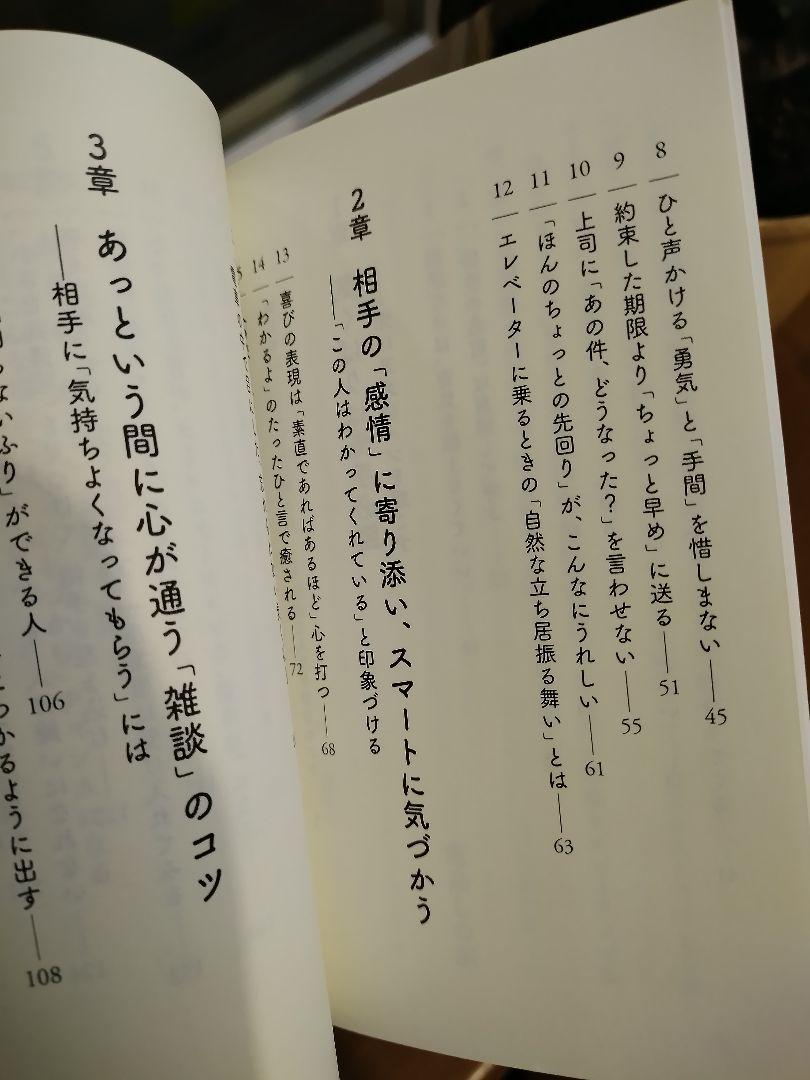 8 ひと声かける「勇気」と「手間」を惜しまない 45
9 約束した期限より「ちょっと早め」に送る 51
10 上司に「あの件、どうなった?」を言わせない 55
11 「ほんのちょっとの先回り」が、こんなにうれしい 61
12 エレベーターに乗るときの「自然な立ち居振る舞い」とは 63
2章 相手の「感情」に寄り添い、スマートに気づかう
――「この人はわかってくれている」と印象づける
13 喜びの表現は「素直であればあるほど」心を打つ 68
14 「わかるよ」のたったひと言で癒される 72
3章 あっという間に心が通う「雑談」のコツ
――相手に「気持ちよくなってもらう」には
ないふり」ができる人 106
かるように出す 108